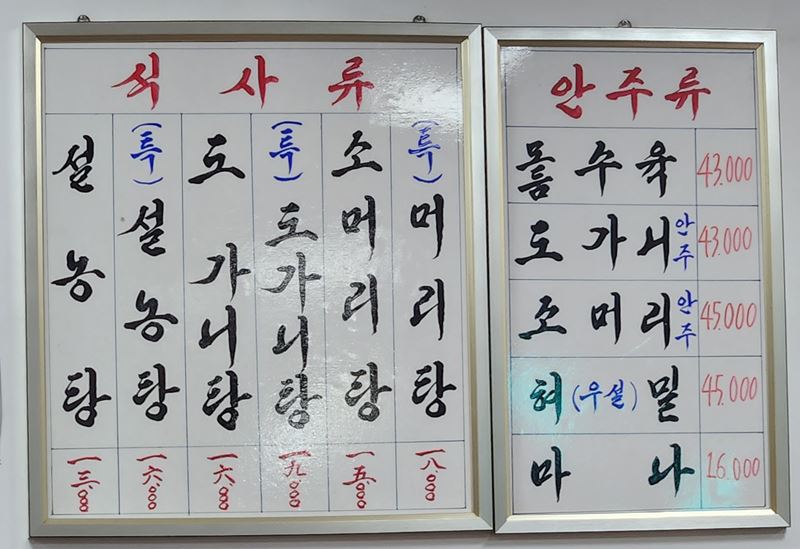 식사류
설농탕 一三.000
(특)설농탕 一六.000
도가니탕 一六.000
(특)도가니탕 一九.000
소머리탕 一五.000
(특)머리탕 一八.000
안주류
모듬수육 43.000
도가니안주 43.000
소머리안주 45.000
혀(우설)밑 45.000
마나 16.000